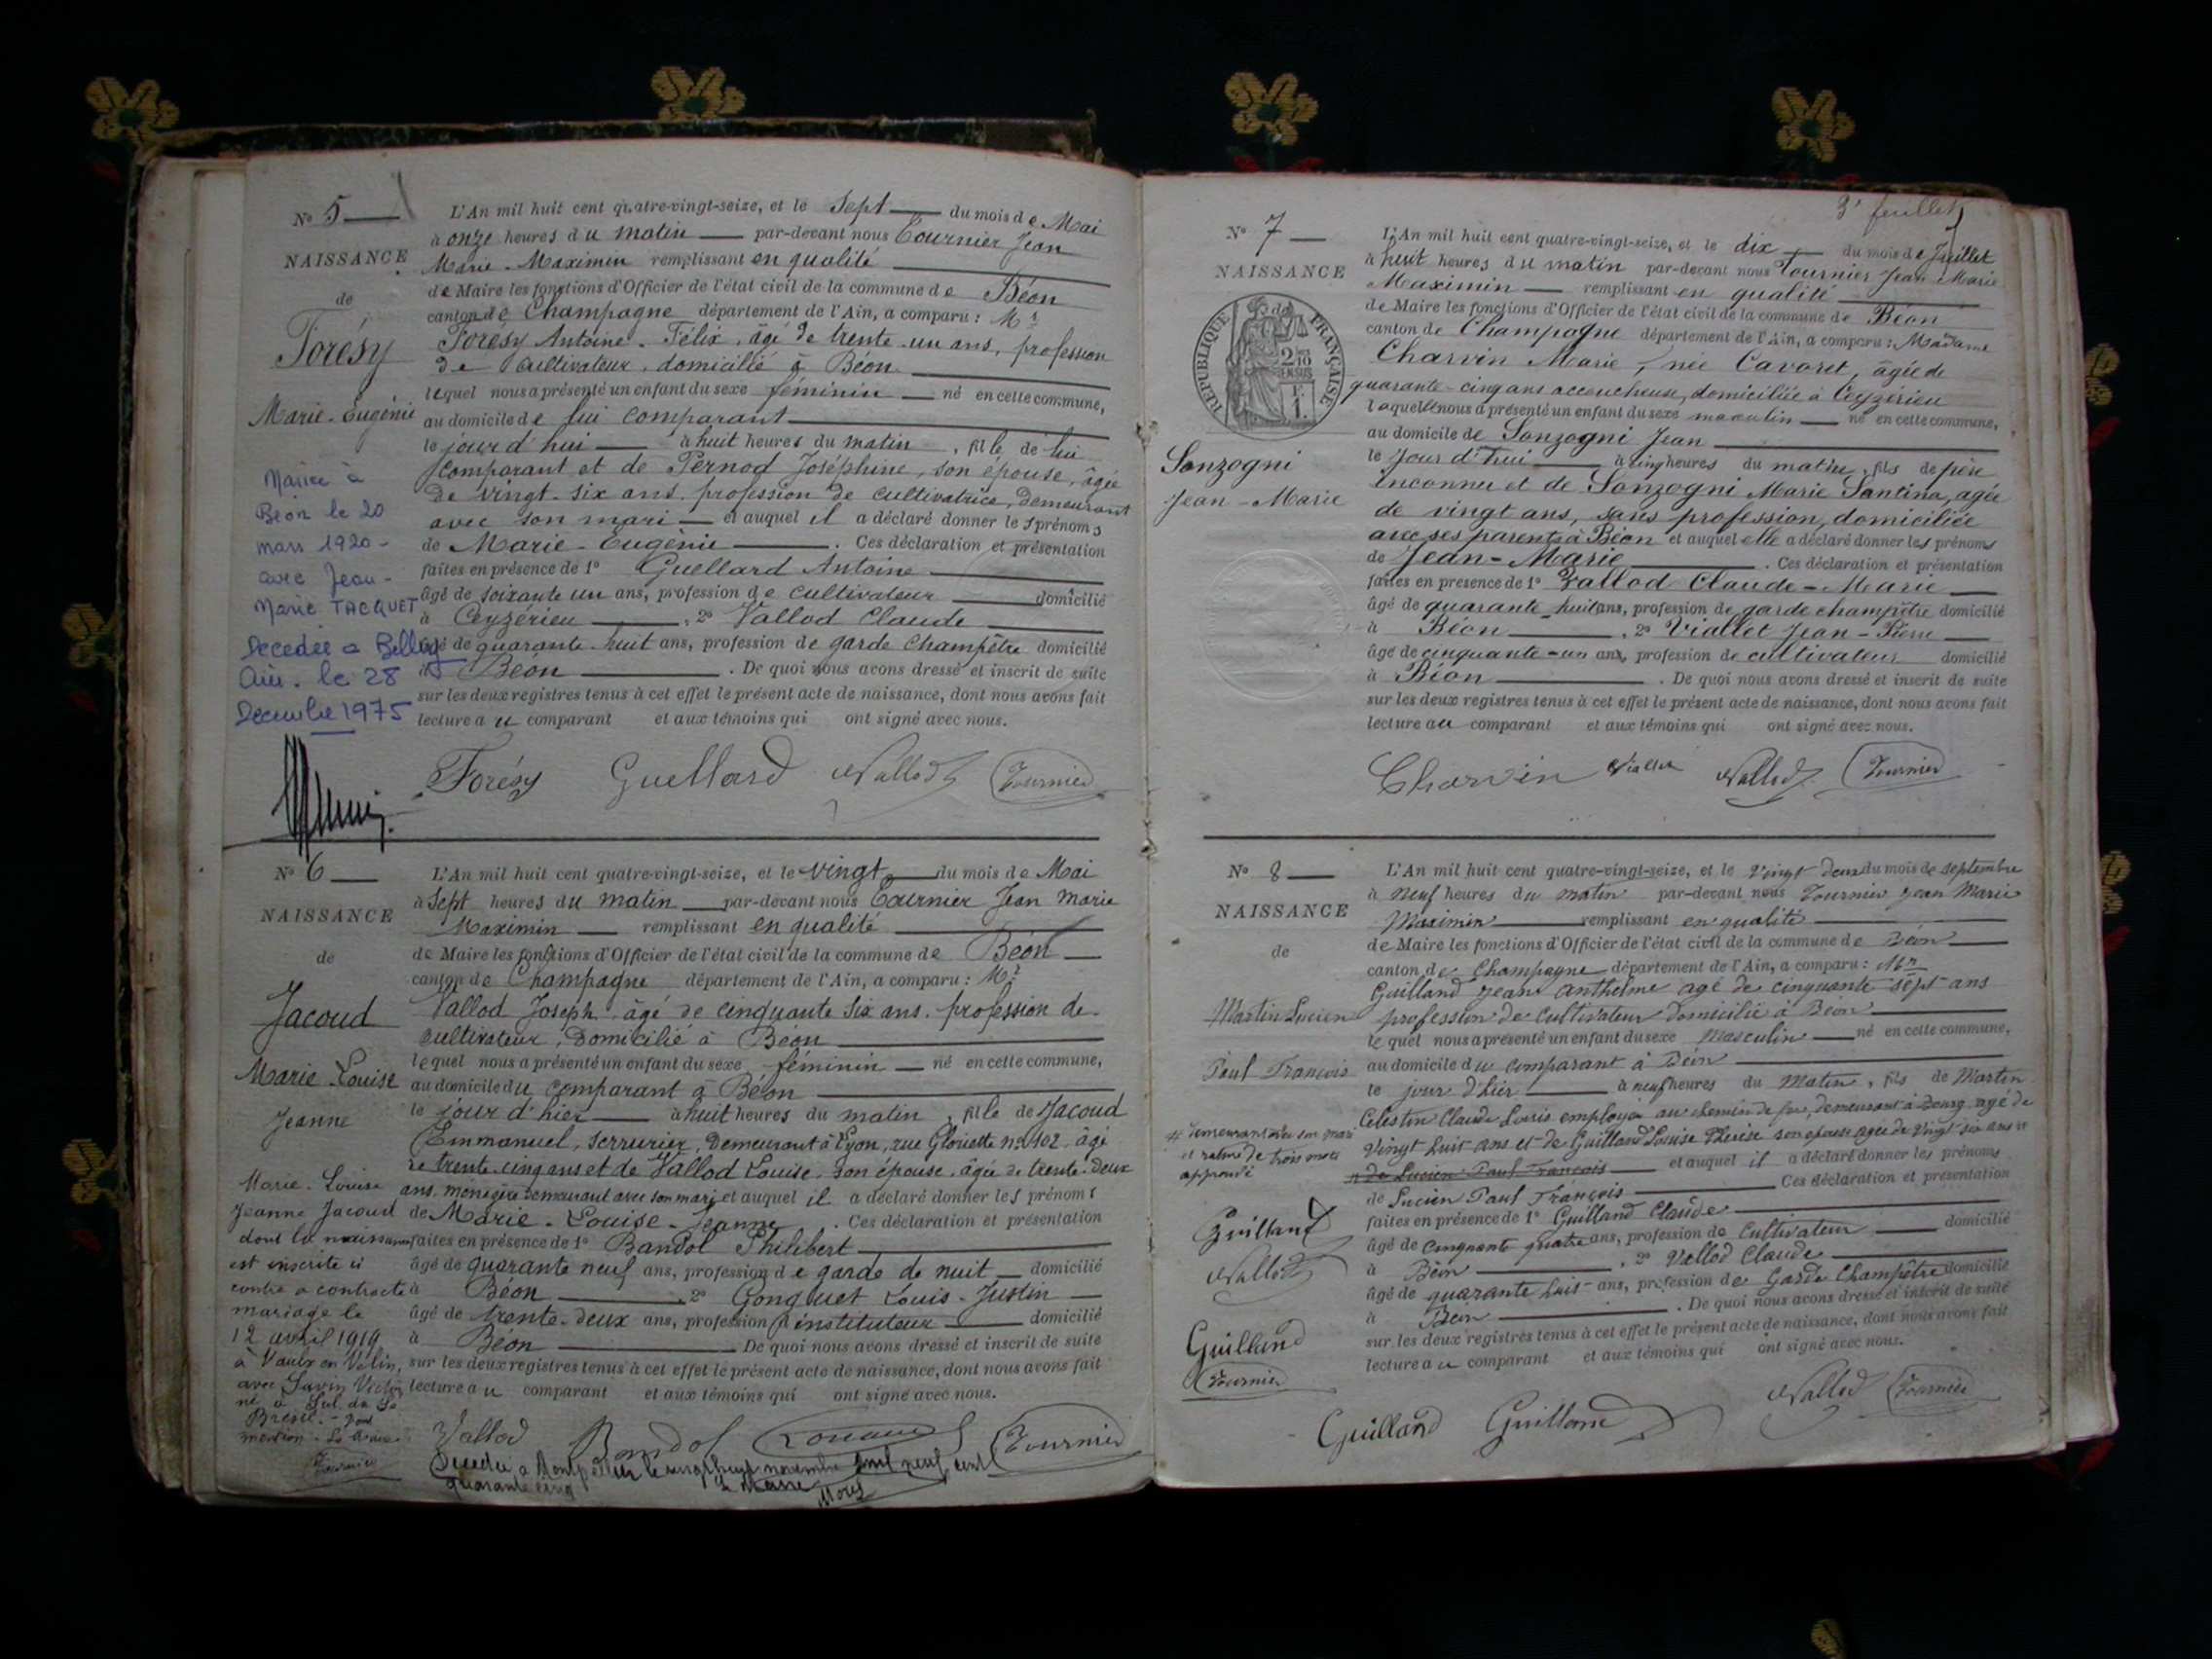 N° 5
NAISSANCE
de
Forésy
Marie-Eugénie
Mariée à
Béon le 20
mars 1920 -
avec Jean-
Marie TACQUET
Décédée à Belley
Ain. le 28
Décembre 1975
L'An mil huit cent quatre-vingt-seize, et le Sept du mois de Mai
à onze heures du matin par-devant nous Tournier Jean
Marie-Maximin remplissant en qualité
de Maire les fonctions d'Officier de l'état civil de la commune de Béon
canton de Champagne département de l'Ain, a comparu : Mr
Forésy Antoine-Félix, âgé de trente-un ans, profession
de cultivateur, domicilié à Béon
lequel nous a présenté un enfant du sexe féminin né en cette commune,
au domicile de lui comparant
le jour d'hui à huit heures du matin, fille de lui
comparant et de Pernod Joséphine, son épouse, âgée
de vingt-six ans, profession de cultivatrice, demeurant
avec son mari et auquel il a déclaré donner les prénoms
de Marie-Eugénie. Ces déclaration et présentation
faites en présence de 1° Guellard Antoine
âgé de soixante un ans, profession de cultivateur domicilié
à Ceyzérieu, 2° Vallod Claude
âgé de quarante-huit ans, profession de garde champêtre domicilié
à Béon. De quoi nous avons dressé et inscrit de suite
sur les deux registres tenus à cet effet le présent acte de naissance, dont nous avons fait
lecture au comparant et aux témoins qui ont signé avec nous.
Forésy Guellard Vallod Tournier
N° 6
NAISSANCE
de
Jacoud
Marie Louise
Jeanne
Marie-Louise
Jeanne Jacoud
dont la naissance
est inscrite ci
contre a contracté
mariage le
12 avril 1919
à Vaulx en Vélin,
avec Savin Victor
né à
Brésil. - Dont
mention. Le Maire
Tournier
L'An mil huit cent quatre-vingt-seize, et le vingt du mois de Mai
à Sept heures du matin par-devant nous Tournier Jean Marie
Maximin remplissant en qualité
de Maire les fonctions d'Officier de l'état civil de la commune de Béon
canton de Champagne département de l'Ain, a comparu : Mr
Vallod Joseph âgé de cinquante six ans, profession de
cultivateur, domicilié à Béon
lequel nous a présenté un enfant du sexe féminin né en cette commune,
au domicile du comparant à Béon
le jour d'hier à huit heures du matin, fille de Jacoud
Emmanuel, serrurier, demeurant à Lyon, rue Gloriette no 102, âgé
de trente-cinq ans et de Vallod Louise, son épouse, âgée de trente-deux
ans, ménagère demeurant avec son mari et auquel il a déclaré donner les prénoms
de Marie-Louise-Jeanne. Ces déclaration et présentation
faites en présence de 1° Bandol Philibert
âgé de quarante neuf ans, profession de garde de nuit domicilié
à Béon, 2° Gonguet Louis-Justin
âgé de trente-deux ans, profession d'instituteur domicilié
à Béon. De quoi nous avons dressé et inscrit de suite
sur les deux registres tenus à cet effet le présent acte de naissance, dont nous avons fait
lecture au comparant et aux témoins qui ont signé avec nous.
Vallod Bandol Tournier
Décédée à Montpellier le vingt huit novembre mil neuf cent
quarante cinq Le Maire
N° 7
NAISSANCE
RÉPUBLIQUE FRANÇAISE
Sonzogni
Jean-Marie
3e feuillet
L'An mil huit cent quatre-vingt-seize, et le dix du mois de Juillet
à huit heures du matin par-devant nous Tournier Jean Marie
Maximin remplissant en qualité
de Maire les fonctions d'Officier de l'état civil de la commune de Béon
canton de Champagne département de l'Ain, a comparu : Madame
Charvin Marie, née Cavoret, âgée de
quarante-cinq ans accoucheuse, domiciliée à Ceyzérieu
laquelle nous a présenté un enfant du sexe masculin né en cette commune,
au domicile de Sonzogni Jean
le jour d'hui à cinq heures du matin, fils de père
inconnu et de Sonzogni Marie Santina, agée
de vingt ans, sans profession, domiciliée
avec ses parents à Béon et auquel elle a déclaré donner les prénoms
de Jean-Marie. Ces déclaration et présentation
faites en présence de 1° Vallod Claude-Marie
âgé de quarante-huit ans, profession de garde champêtre domicilié
à Béon, 2° Viallet Jean-Pierre
âgé de cinquante-un ans, profession de cultivateur domicilié
à Béon. De quoi nous avons dressé et inscrit de suite
sur les deux registres tenus à cet effet le présent acte de naissance, dont nous avons fait
lecture au comparant et aux témoins qui ont signé avec nous.
Charvin Viallet Vallod Tournier
N° 8
NAISSANCE
de
Martin Lucien
Paul François
# demeurant avec son mari
et rature de trois mots
approuvé
Guilland
Vallod
Guilland
Tournier
L'An mil huit cent quatre-vingt-seize, et le vingt deux du mois de septembre
à neuf heures du matin par-devant nous Tournier Jean Marie
Maximin remplissant en qualité
de Maire les fonctions d'Officier de l'état civil de la commune de Béon
canton de Champagne département de l'Ain, a comparu : Mr
Guilland Jean Anthelme agé de cinquante-sept ans
profession de cultivateur domicilié à Béon
lequel nous a présenté un enfant du sexe masculin né en cette commune,
au domicile du comparant à Béon
le jour d'hier à neuf heures du matin, fils de Martin
Célestin Claude Louis employé au chemin de fer, demeurant à Bourg agé de
vingt huit ans et de Guilland Louise Thérèse son épouse agée de vingt six ans #
de Lucien Paul François et auquel il a déclaré donner les prénoms
de Lucien Paul François Ces déclaration et présentation
faites en présence de 1° Guilland Claude
âgé de cinquante quatre ans, profession de cultivateur domicilié
à Béon, 2° Vallod Claude
âgé de quarante huit ans, profession de Garde Champêtre domicilié
à Béon. De quoi nous avons dressé et inscrit de suite
sur les deux registres tenus à cet effet le présent acte de naissance, dont nous avons fait
lecture au comparant et aux témoins qui ont signé avec nous.
Guilland Guilland Vallod Tournier